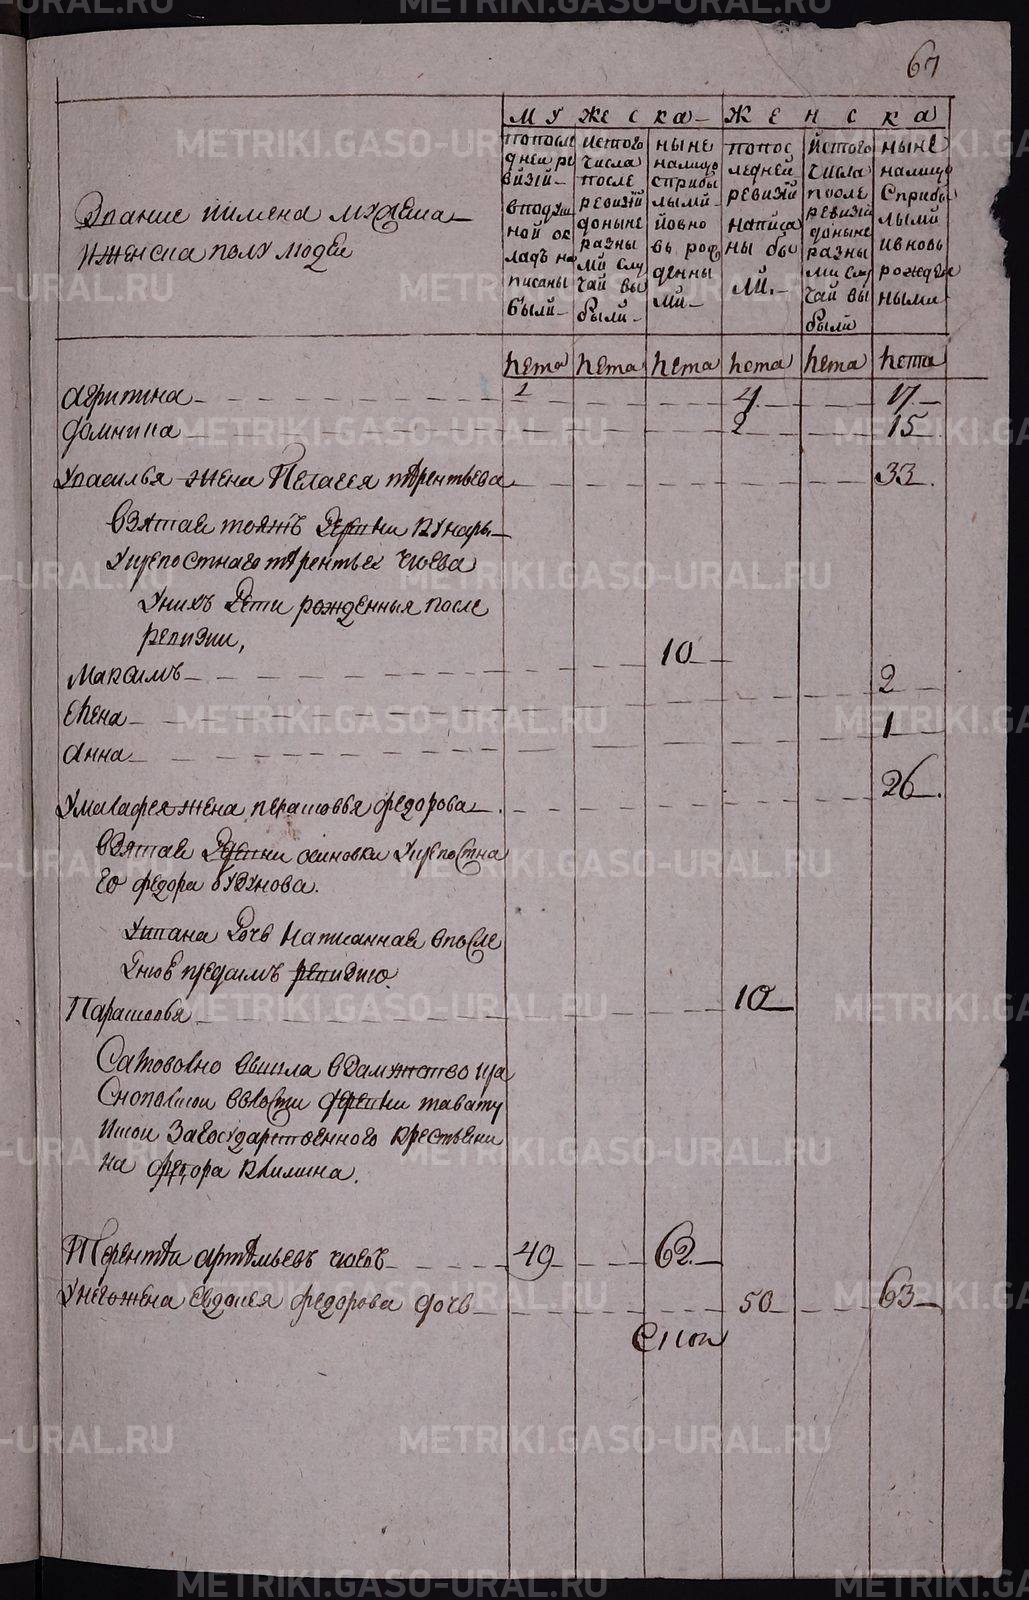 67
МУЖЕСКА ЖЕНСКА
Звание и имена мужеска
и женска полу людей
по после
дней ре
визiй
в подуш
ной ок
ладъ на
писаны
были
ис того
числа
после
ревизiй
до ныне
разны
ми слу
чаи вы
были
ныне
на лицо
с прибы
лыми
и вно
вь рож
денны
ми
по пос
ледней
ревизiй
написа
ны бы
ли
ис того
числа
после
ревизiй
до ныне
разны
ми слу
чаи вы
были
ныне
на лицо
с прибы
лыми
и вновь
рожден
ными
лета лета лета лета лета лета
4 17
Домника 2 15
У Василья жена Пелагея Терентьева 33
взятая тояжъ деревни
у крепостнаго Терентья
У нихъ дети рожденныя после
ревизии,
Максимъ 10
Елена 2
Анна 1
У Малафея жена Парасковья Федорова 26
взятая деревни Осиновки у крепостна
го Федора
дочь написанная в после
днюю пред симъ ревизию
Парасковья 10
Самовольно вышла в замужство
волости деревни Тавату
за государственного крестьяни
на Федора Климина.
Терентей Артемьевъ 49 62
У него жена Евдокея Федорова дочь 50 63
METRIKI.GASO-URAL.RU